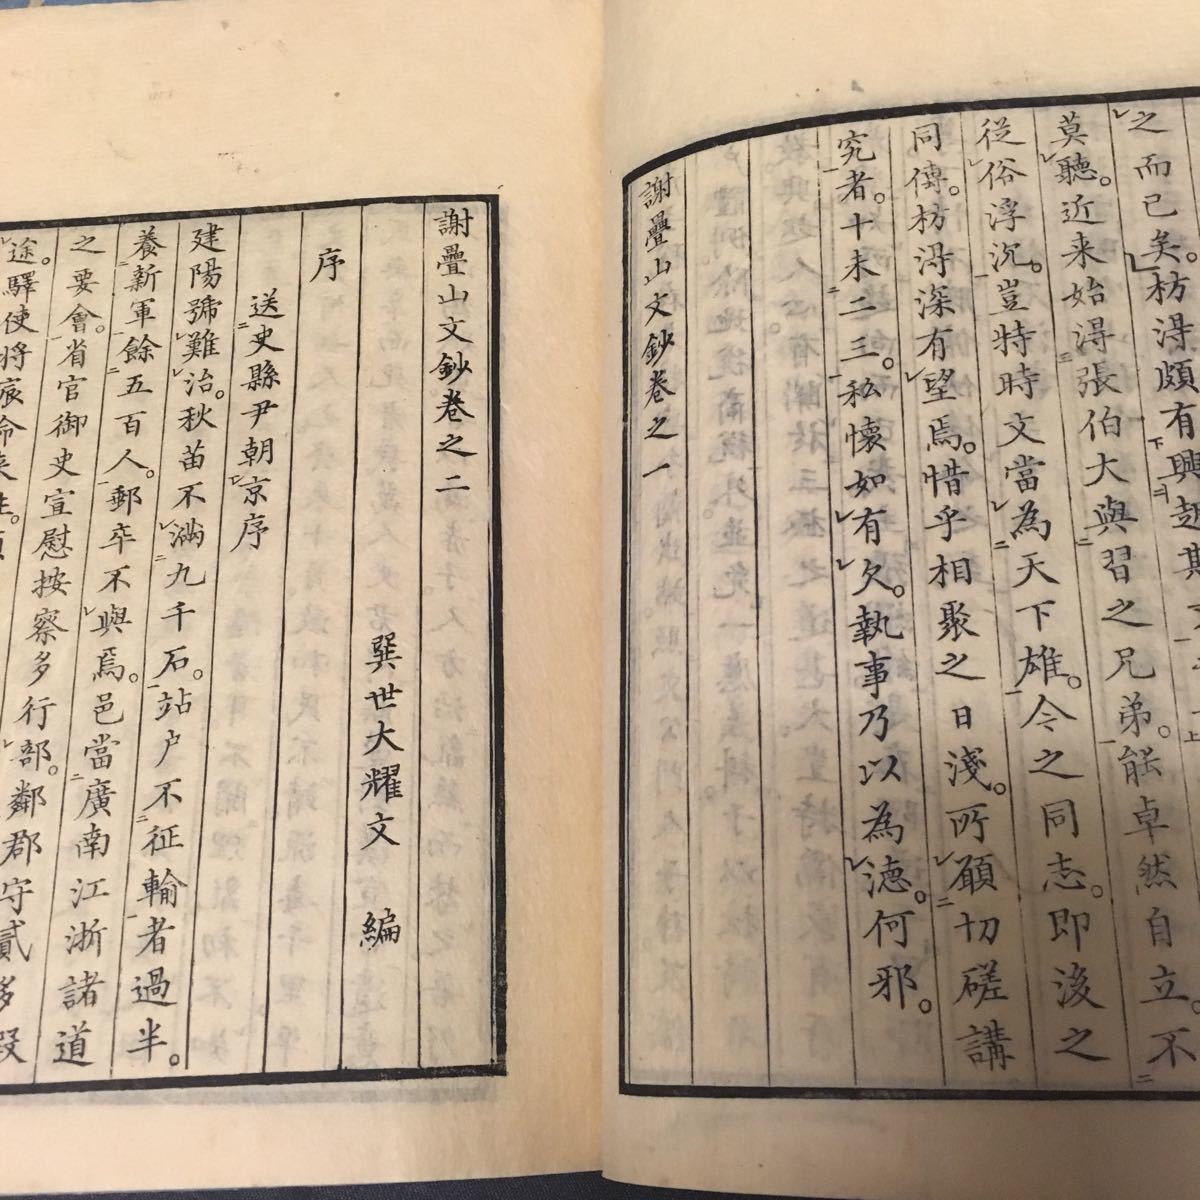 之而已矣。枋淂頗有興起斯
莫聽。近来始淂張伯大與習之兄弟。能卓然自立。不
從俗浮沉。豈特時文當為天下雄。今之同志。即後之
同傳。枋淂深有望焉。惜乎相聚之日淺。所願切磋講
究者。十未二三。私懷如有欠。執事乃以為德。何邪。
謝疊山文鈔卷之一
謝疊山文鈔卷之二
巽世大耀文 編
序
送史縣尹朝京序
建陽號難治。秋苗不満九千石。站户不征輸者過半。
養新軍餘五百人。郵卒不與焉。邑當廣南江浙諸道
之要會。省官御史宣慰按察多行部。鄰郡守貳多假
途。驛使將宸命来徃。